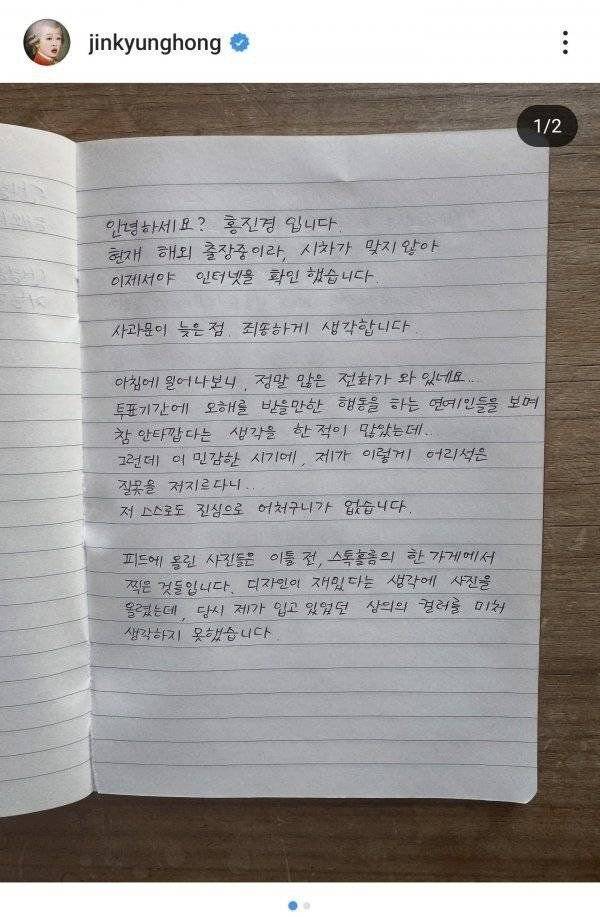 jinkyunghong
1/2
안녕하세요? 홍진경 입니다.
현재 해외 출장중이라, 시차가 맞지않아
이제서야 인터넷을 확인 했습니다.
사과문이 늦은점. 죄송하게 생각합니다.
아침에 일어나보니, 정말 많은 전화가 와 있네요...
투표기간에 오해를 받을만한 행동을 하는 연예인들을 보며
참 안타깝다는 생각을 한 적이 많았는데..
그런데 이 민감한 시기에, 제가 이렇게 어리석은
잘못을 저지르다니..
저 스스로도 진심으로 어처구니가 없습니다.
피드에 올린 사진들은 이틀 전, 스톡홀름의 한 가게에서
찍은 것들입니다. 디자인이 재밌다는 생각에 사진을
올렸는데, 당시 제가 입고 있었던 상의의 컬러를 미처
생각하지 못했습니다.